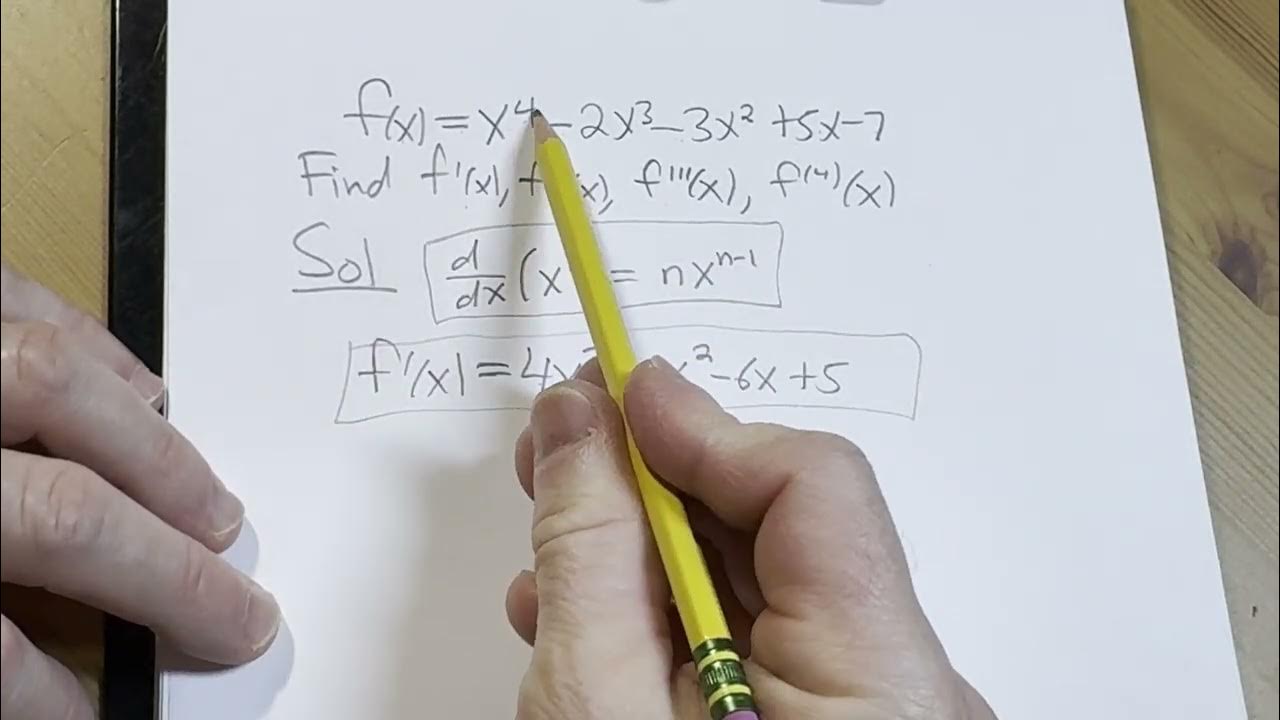 f(x) = x⁴ - 2x³ - 3x² + 5x - 7
Find f'(x), f (x), f'''(x), f⁽⁴⁾(x)
Sol d/dx (x = nxⁿ⁻¹
f'(x) = 4x ² - 6x + 5